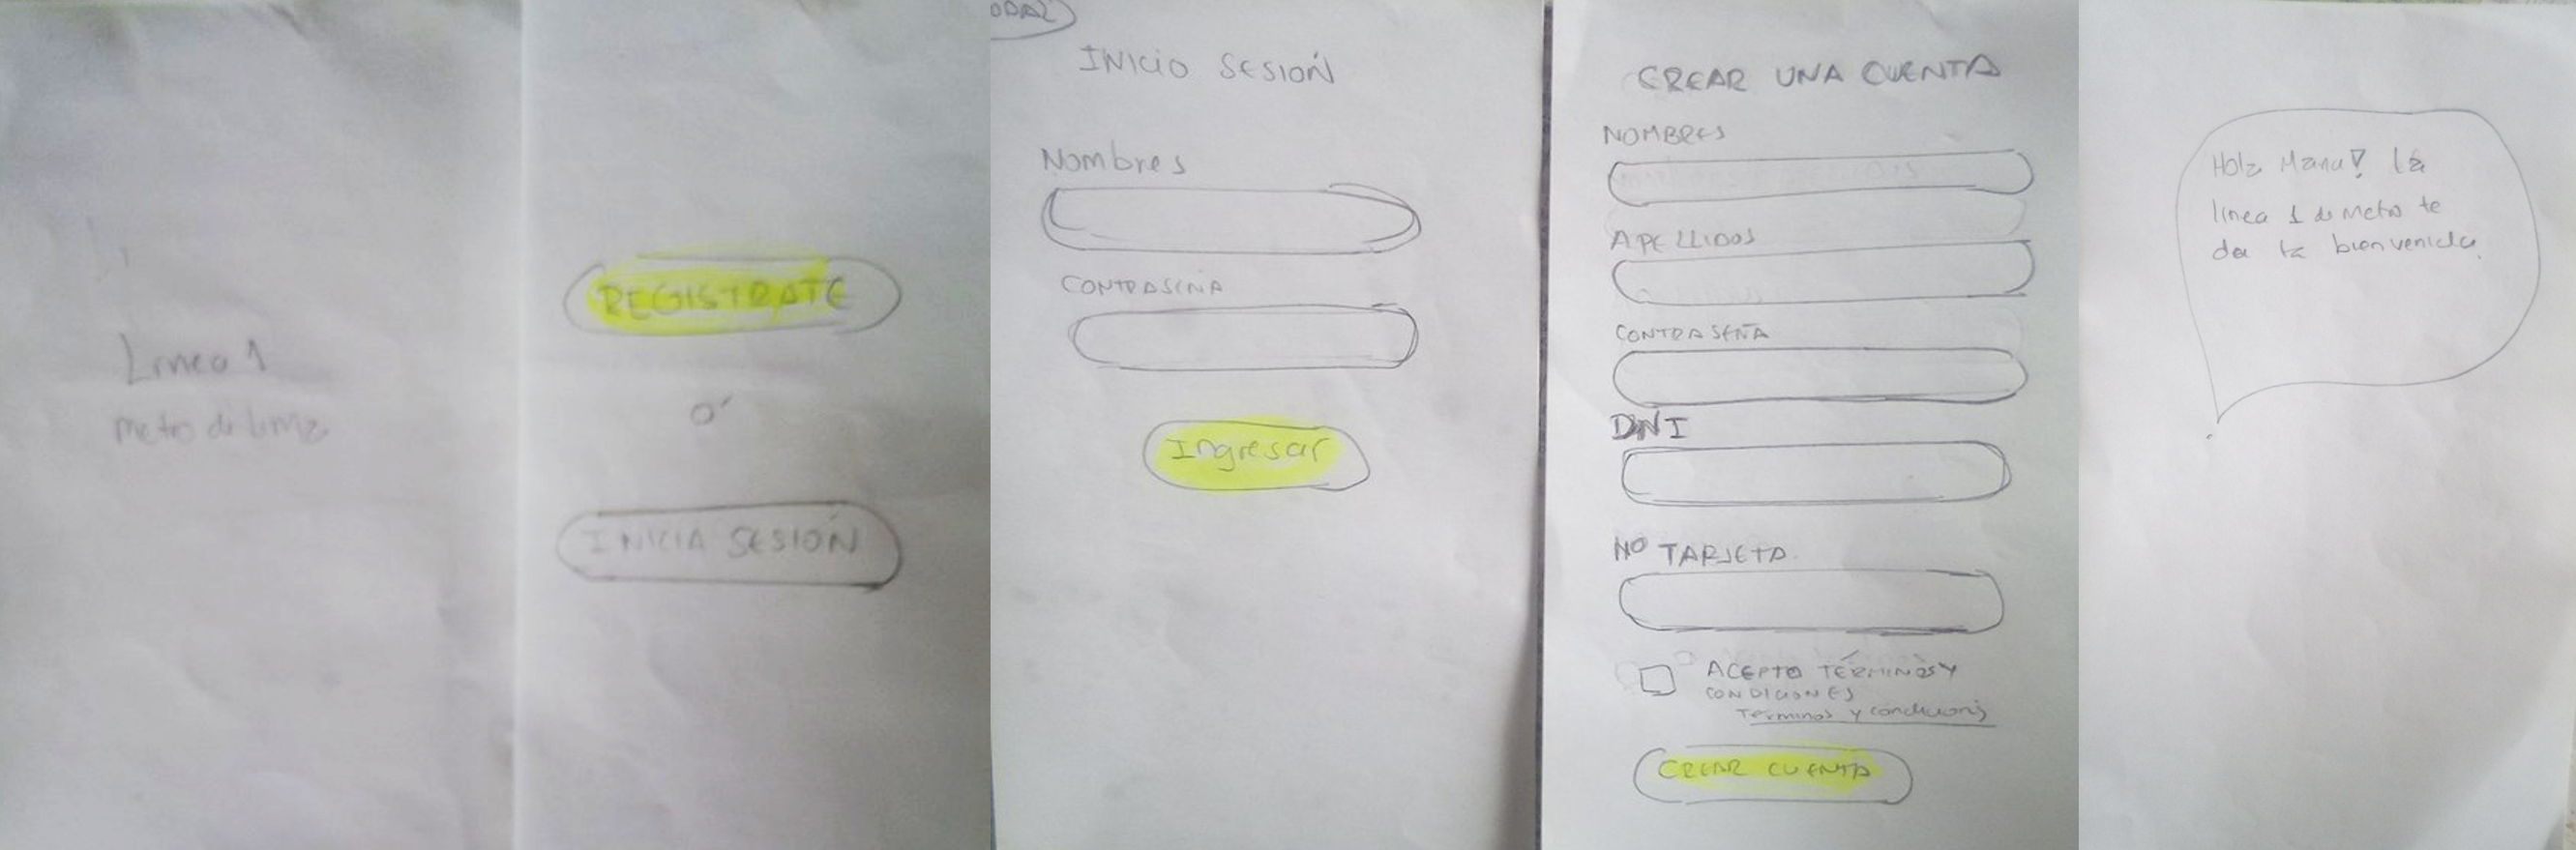 Linea 1
metro de lima
REGISTRATE
O'
INICIA SESIÓN
INICIO SESIÓN
Nombres
CONTRASEÑA
Ingresar
CREAR UNA CUENTA
NOMBRES
APELLIDOS
CONTRASEÑA
DNI
NO TARJETA
ACEPTO TÉRMINOS Y
CONDICIONES
Terminos y condiciones
CREAR CUENTA
Hola Manu! La
línea 1 de Metro te
da la bienvenida.